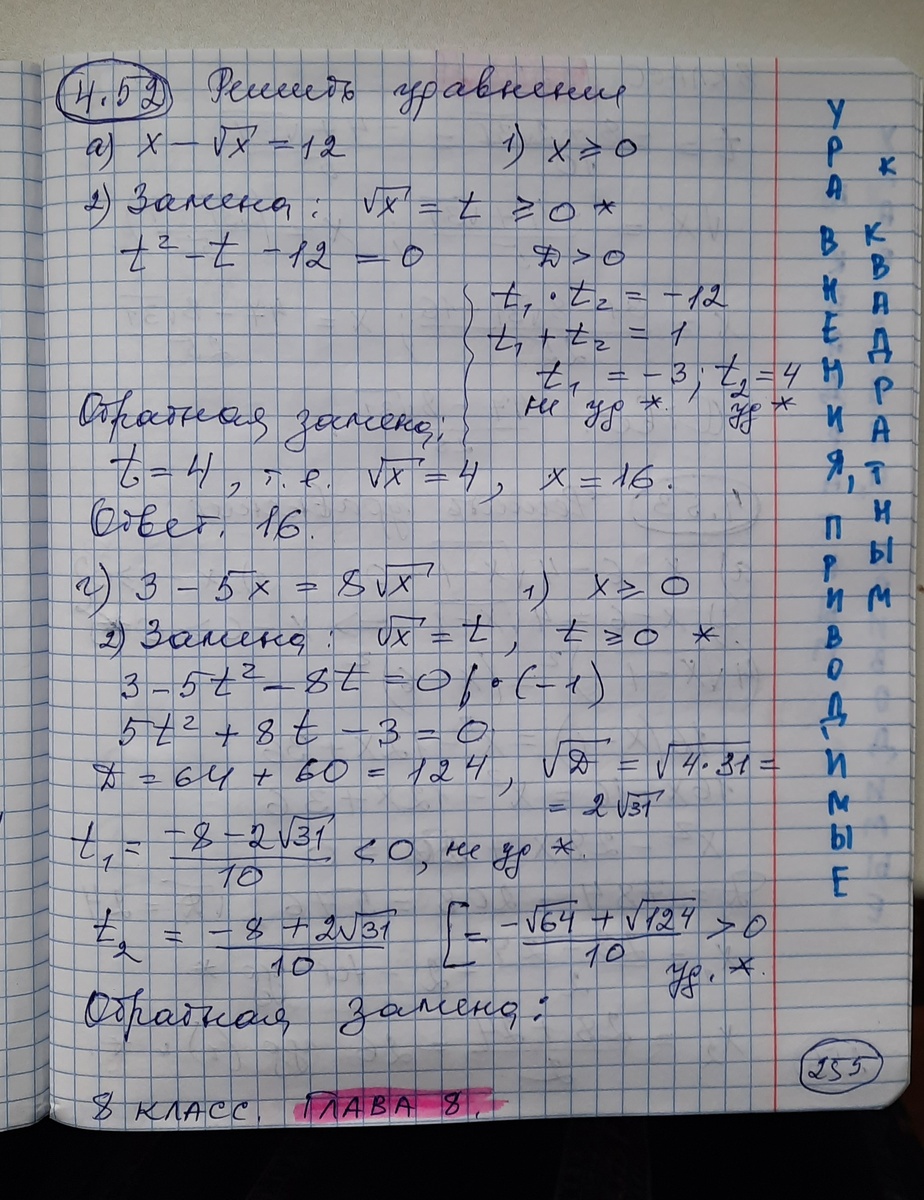 4.52 Решить уравнения
а) x − √x = 12 1) x ≥ 0
2) Замена: √x = t ≥ 0 *
t² − t − 12 = 0 D > 0
t₁ · t₂ = −12
t₁ + t₂ = 1
t₁ = −3; t₂ = 4
не уд *. уд *
Обратная замена:
t = 4, т.е. √x = 4, x = 16.
Ответ. 16.
г) 3 − 5x = 8√x 1) x ≥ 0
2) Замена: √x = t, t ≥ 0 *.
3 − 5t² − 8t = 0 | · (−1)
5t² + 8t − 3 = 0
D = 64 + 60 = 124, √D = √4·31 =
= 2√31
t₁ = (−8 − 2√31)/10 < 0, не уд *.
t₂ = (−8 + 2√31)/10 [= (−√64 + √124)/10 > 0
уд. *.
Обратная замена:
8 КЛАСС. ГЛАВА 8.
255
УРАВНЕНИЯ, ПРИВОДИМЫЕ
К КВАДРАТНЫМ